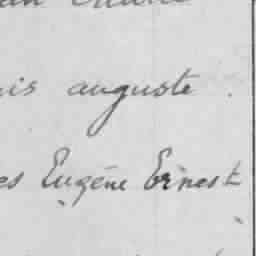 is auguste.
es Eugène Ernest